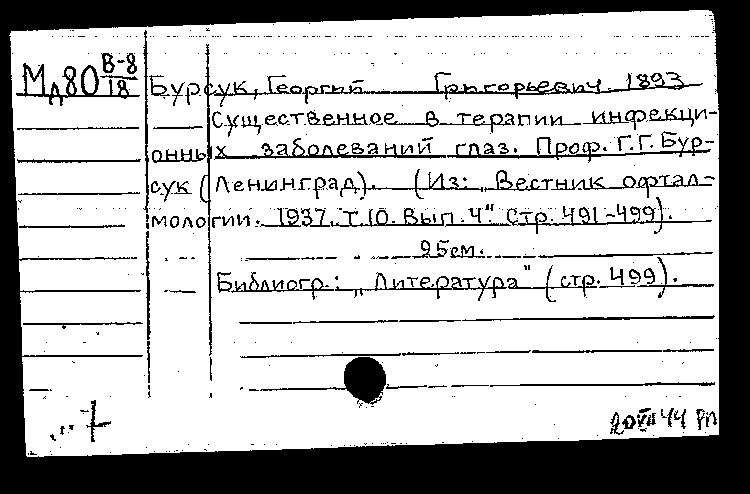 Мд80 В-8/18
Бурсук, Георгий Григорьевич 1893
Существенное в терапии инфекци-
онных заболеваний глаз. Проф. Г.Г. Бур-
сук (Ленинград). (Из: „Вестник офтал-
мологии. 1937. Т. 10. Вып. 4" Стр. 491-499).
25 см.
Библиогр.: „Литература" (стр. 499).
20 VII 44 РП